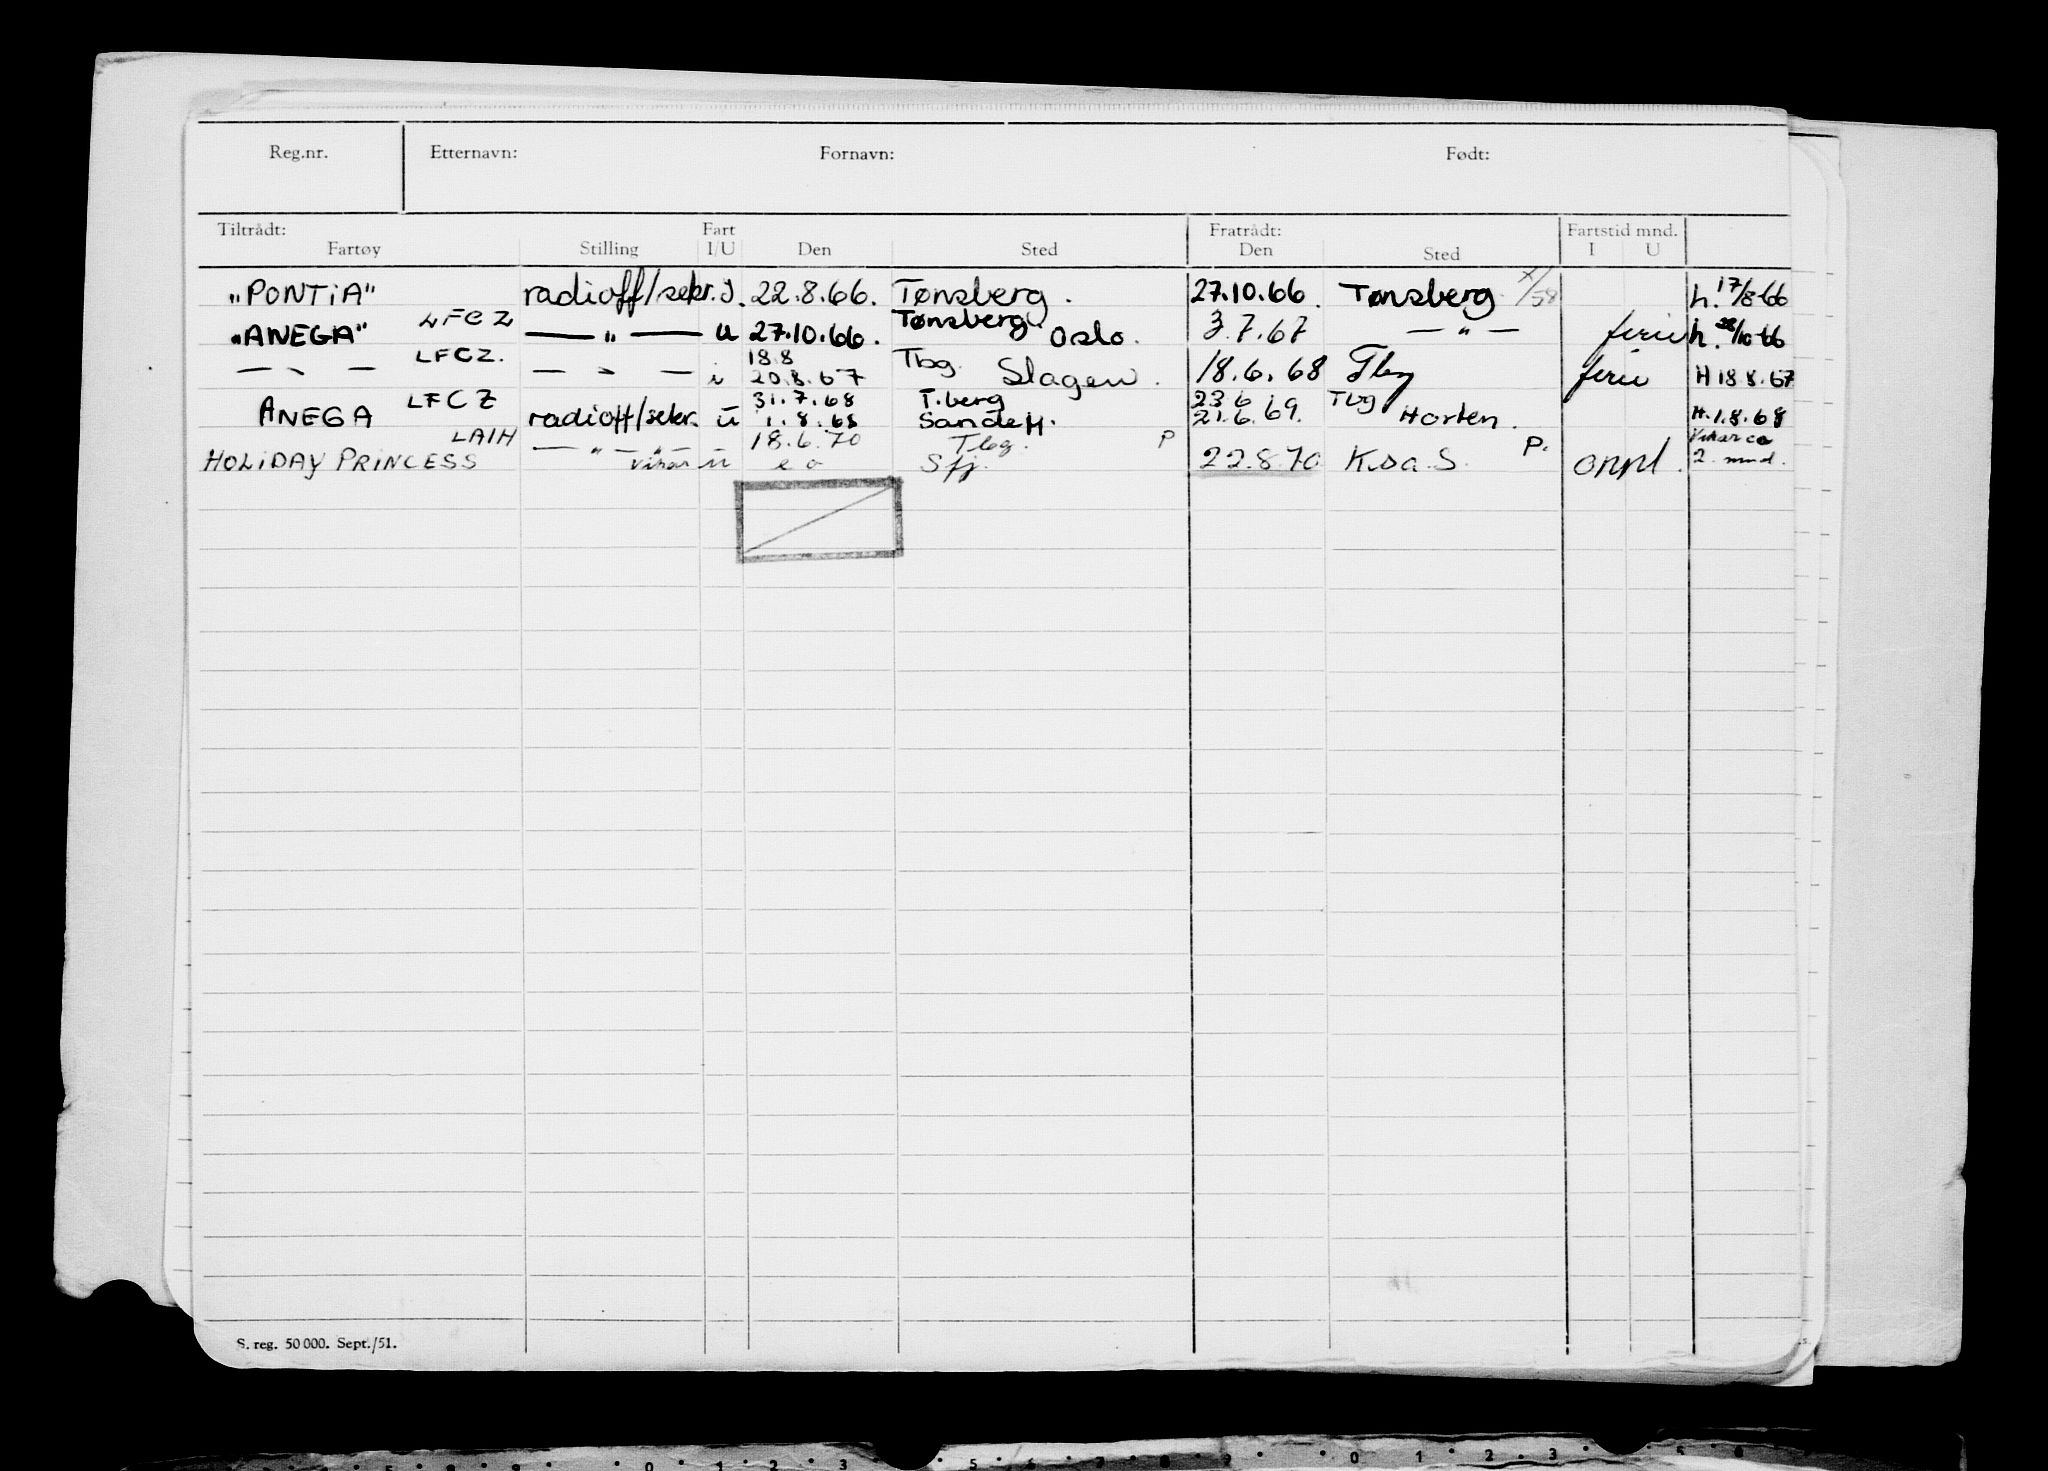 Reg.nr. Etternavn: Fornavn: Født:
Tiltrådt: Fart Fratrådt: Fartstid mnd.
Fartøy Stilling I/U Den Sted Den Sted I U
"PONTIA" radioff/sekr. I. 22.8.66. Tønsberg. 27.10.66. Tønsberg h. 17/8-66
"ANEGA" LFCZ — " — u 27.10.66. Tønsberg Oslo. 3.7.67 — " — ferie h. 28/10-66
— " — LFCZ. — " — i 18.8 20.8.67 Tbg. Slagen. 18.6.68 Tbg ferie H 18.8.67
31.7.68 T.berg 23.6 Tbg
ANEGA LFCZ radioff/sekr. u 1.8.68 Sandefj. 21.6.69. Horten. H.1.8.68
LAIH — " — " — 18.6.70 Tbg. P P. Vikar ca
HOLIDAY PRINCESS vikar u e o Sfj. 22.8.70 K.s.a.S. oppl. 2 mnd.
S. reg. 50 000. Sept./51.